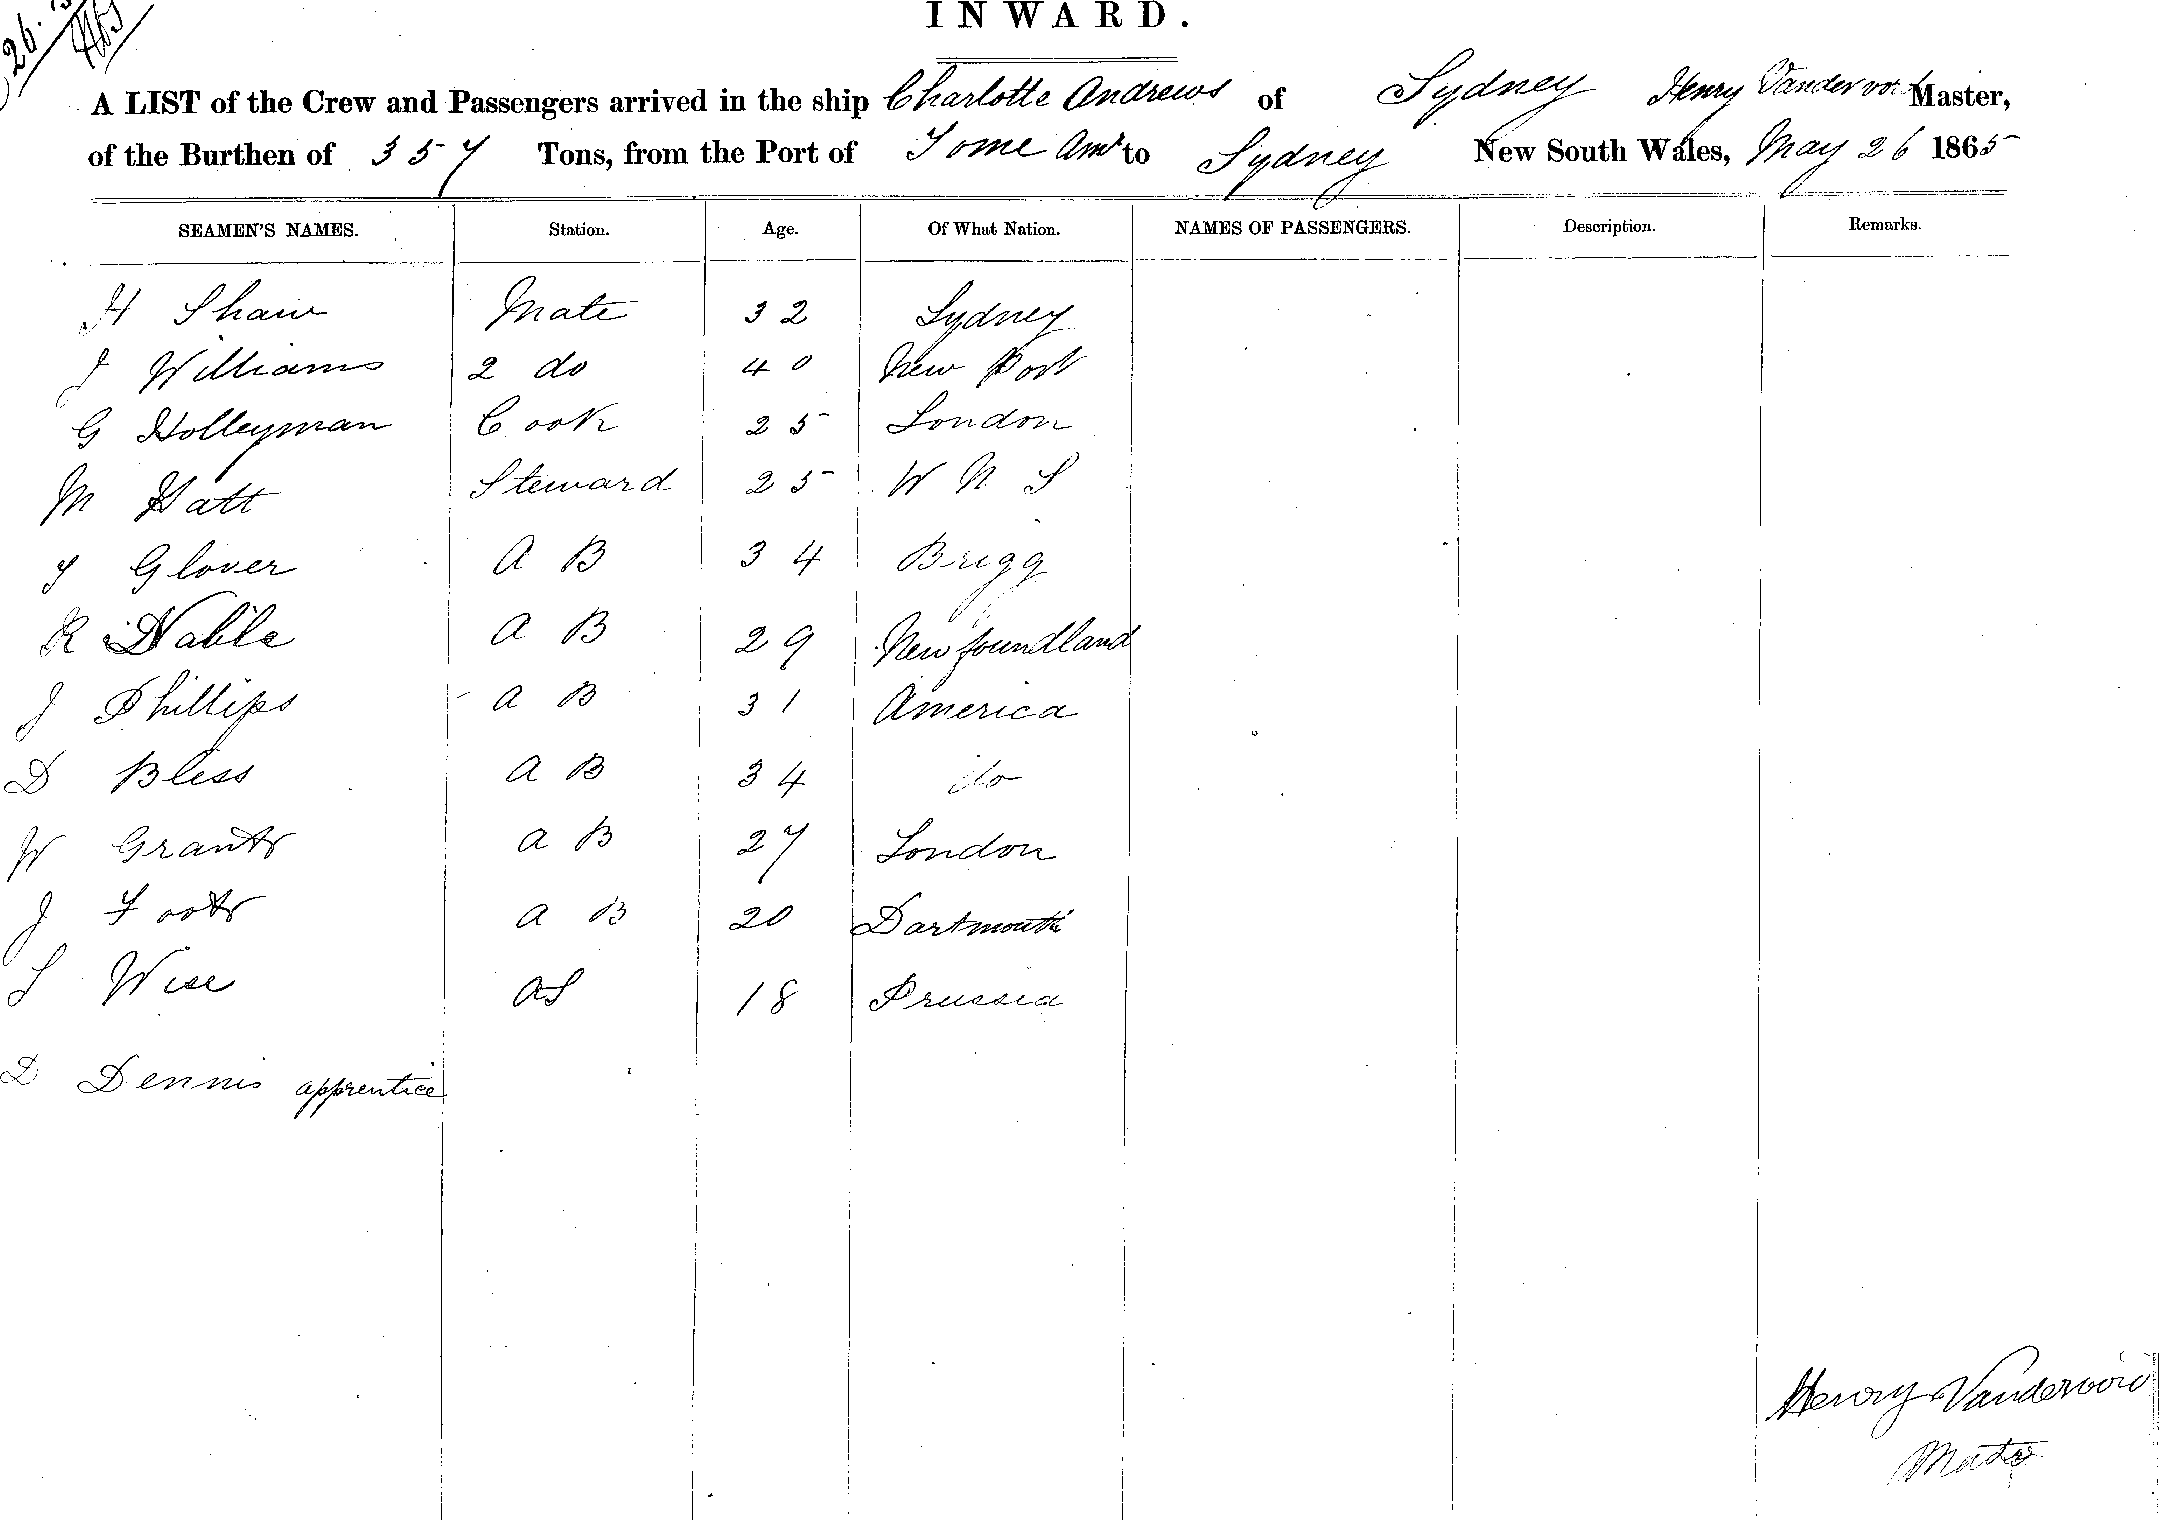 26.
INWARD.
A LIST of the Crew and Passengers arrived in the ship Charlotte Andrews of Sydney Henry Vandervor Master,
of the Burthen of 357 Tons, from the Port of Tome Amr to Sydney New South Wales, May 26 1865
SEAMEN'S NAMES. Station. Age. Of What Nation. NAMES OF PASSENGERS. Description. Remarks.
H Shaw Mate 32 Sydney
J Williams 2 do 40 New Port
G Holleyman Cook 25 London
M Hatt Steward 25 W N S
Glover A B 34 Brigg
R Nable A B 29 Newfoundland
J Phillips A B 31 America
D Bless A B 34 do
W Grant A B 27 London
J Foot A B 20 Dartmouth
S Wise OS 18 Prussia
D Dennis apprentice
Henry Vandervord